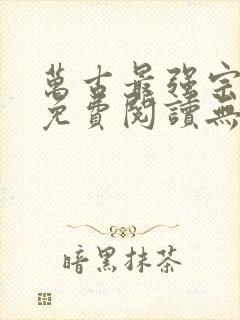 萬古最強宗
免費閱讀無
暗黑抹茶